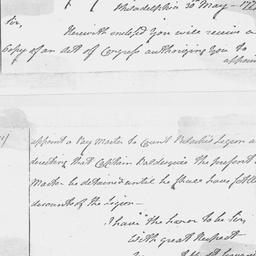 Philadelphia 30 May — 177
Sir,
Herewith enclosed you will receive a
Copy of an Act of Congress authorizing you to
appoint
appoint a Pay Master to Count Pulaski's Legion and
directing that Captain Baldesquie the present
Master be detained until he shall have settled
accounts of the Legion —
I have the honor to be Sir,
With great Respect